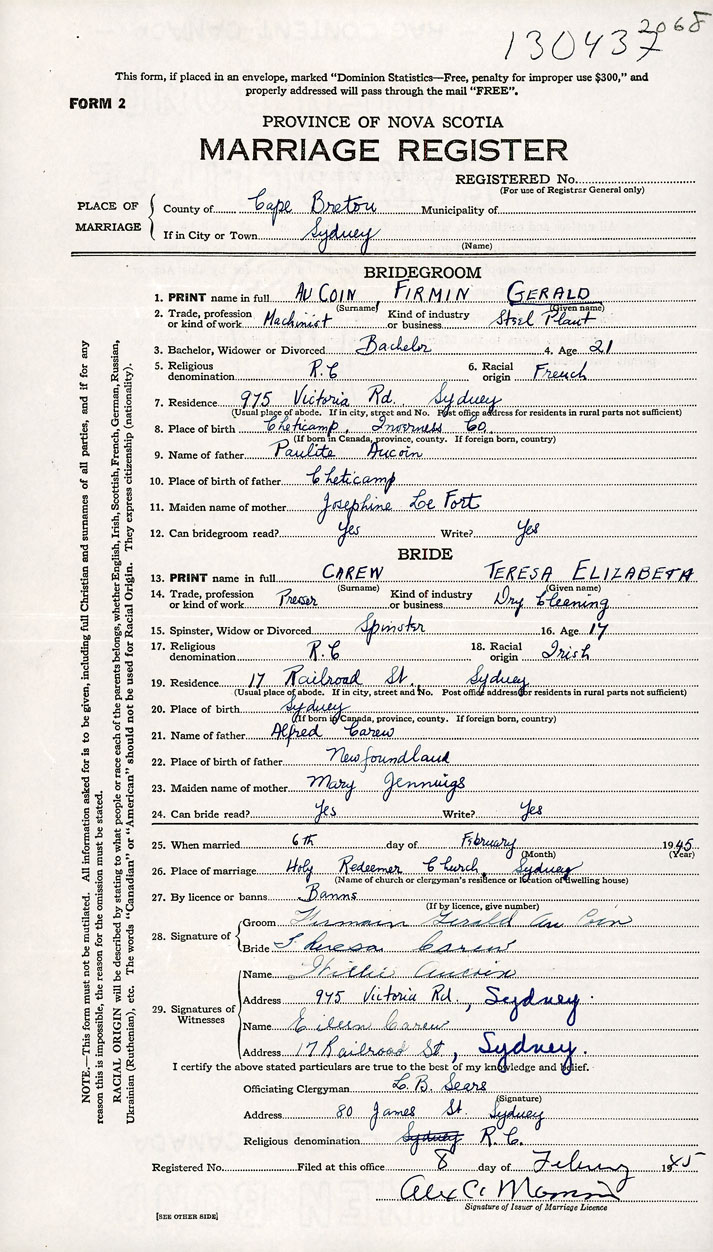 130437
2068
This form, if placed in an envelope, marked "Dominion Statistics—Free, penalty for improper use $300," and
properly addressed will pass through the mail "FREE".
FORM 2
PROVINCE OF NOVA SCOTIA
MARRIAGE REGISTER
REGISTERED No.
(For use of Registrar General only)
PLACE OF MARRIAGE
County of Cape Breton Municipality of
If in City or Town Sydney
(Name)
BRIDEGROOM
1. PRINT name in full AUCOIN FIRMIN GERALD
(Surname) (Given name)
2. Trade, profession or kind of work Machinist Kind of industry or business Steel Plant
3. Bachelor, Widower or Divorced Bachelor 4. Age 21
5. Religious denomination R.C 6. Racial origin French
7. Residence 975 Victoria Rd. Sydney
(Usual place of abode. If in city, street and No. Post office address for residents in rural parts not sufficient)
8. Place of birth Cheticamp, Inverness Co.
(If born in Canada, province, county. If foreign born, country)
9. Name of father Paulite Aucoin
10. Place of birth of father Cheticamp
11. Maiden name of mother Josephine Le Fort
12. Can bridegroom read? Yes Write? Yes
BRIDE
13. PRINT name in full CAREW TERESA ELIZABETH
(Surname) (Given name)
14. Trade, profession or kind of work Presser Kind of industry or business Dry Cleening
15. Spinster, Widow or Divorced Spinster 16. Age 17
17. Religious denomination R.C 18. Racial origin Irish
19. Residence 17 Railroad St. Sydney
(Usual place of abode. If in city, street and No. Post office address for residents in rural parts not sufficient)
20. Place of birth Sydney
(If born in Canada, province, county. If foreign born, country)
21. Name of father Alfred Carew
22. Place of birth of father Newfoundland
23. Maiden name of mother Mary Jennings
24. Can bride read? Yes Write? Yes
25. When married 6th day of February 1945
(Month) (Year)
26. Place of marriage Holy Redeemer Church, Sydney
(Name of church or clergyman's residence or location of dwelling house)
27. By licence or banns Banns
(If by licence, give number)
28. Signature of
Groom Firmain Gerald Au Coin
Bride Theresa Carew
29. Signatures of Witnesses
Name Willie Aucoin
Address 975 Victoria Rd., Sydney.
Name Eileen Carew
Address 17 Railroad St, Sydney.
I certify the above stated particulars are true to the best of my knowledge and belief.
Officiating Clergyman L. B. Sears
(Signature)
Address 80 James St. Sydney
Religious denomination Sydney R.C.
Registered No. Filed at this office 8 day of February 1945
Alex C.
Signature of Issuer of Marriage Licence
[SEE OTHER SIDE]
NOTE.—This form must not be mutilated. All information asked for is to be given, including full Christian and surnames of all parties, and if for any
reason this is impossible, the reason for the omission must be stated.
RACIAL ORIGIN will be described by stating to what people or race each of the parents belongs, whether English, Irish, Scottish, French, German, Russian,
Ukrainian (Ruthenian), etc. The words "Canadian" or "American" should not be used for Racial Origin. They express citizenship (nationality).